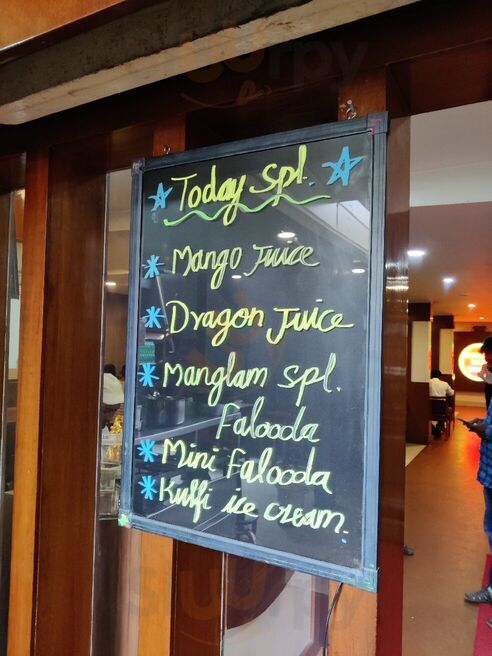 Today spl.
Mango Juice
Dragon Juice
Manglam spl.
Falooda
Mini Falooda
Kulfi ice cream.